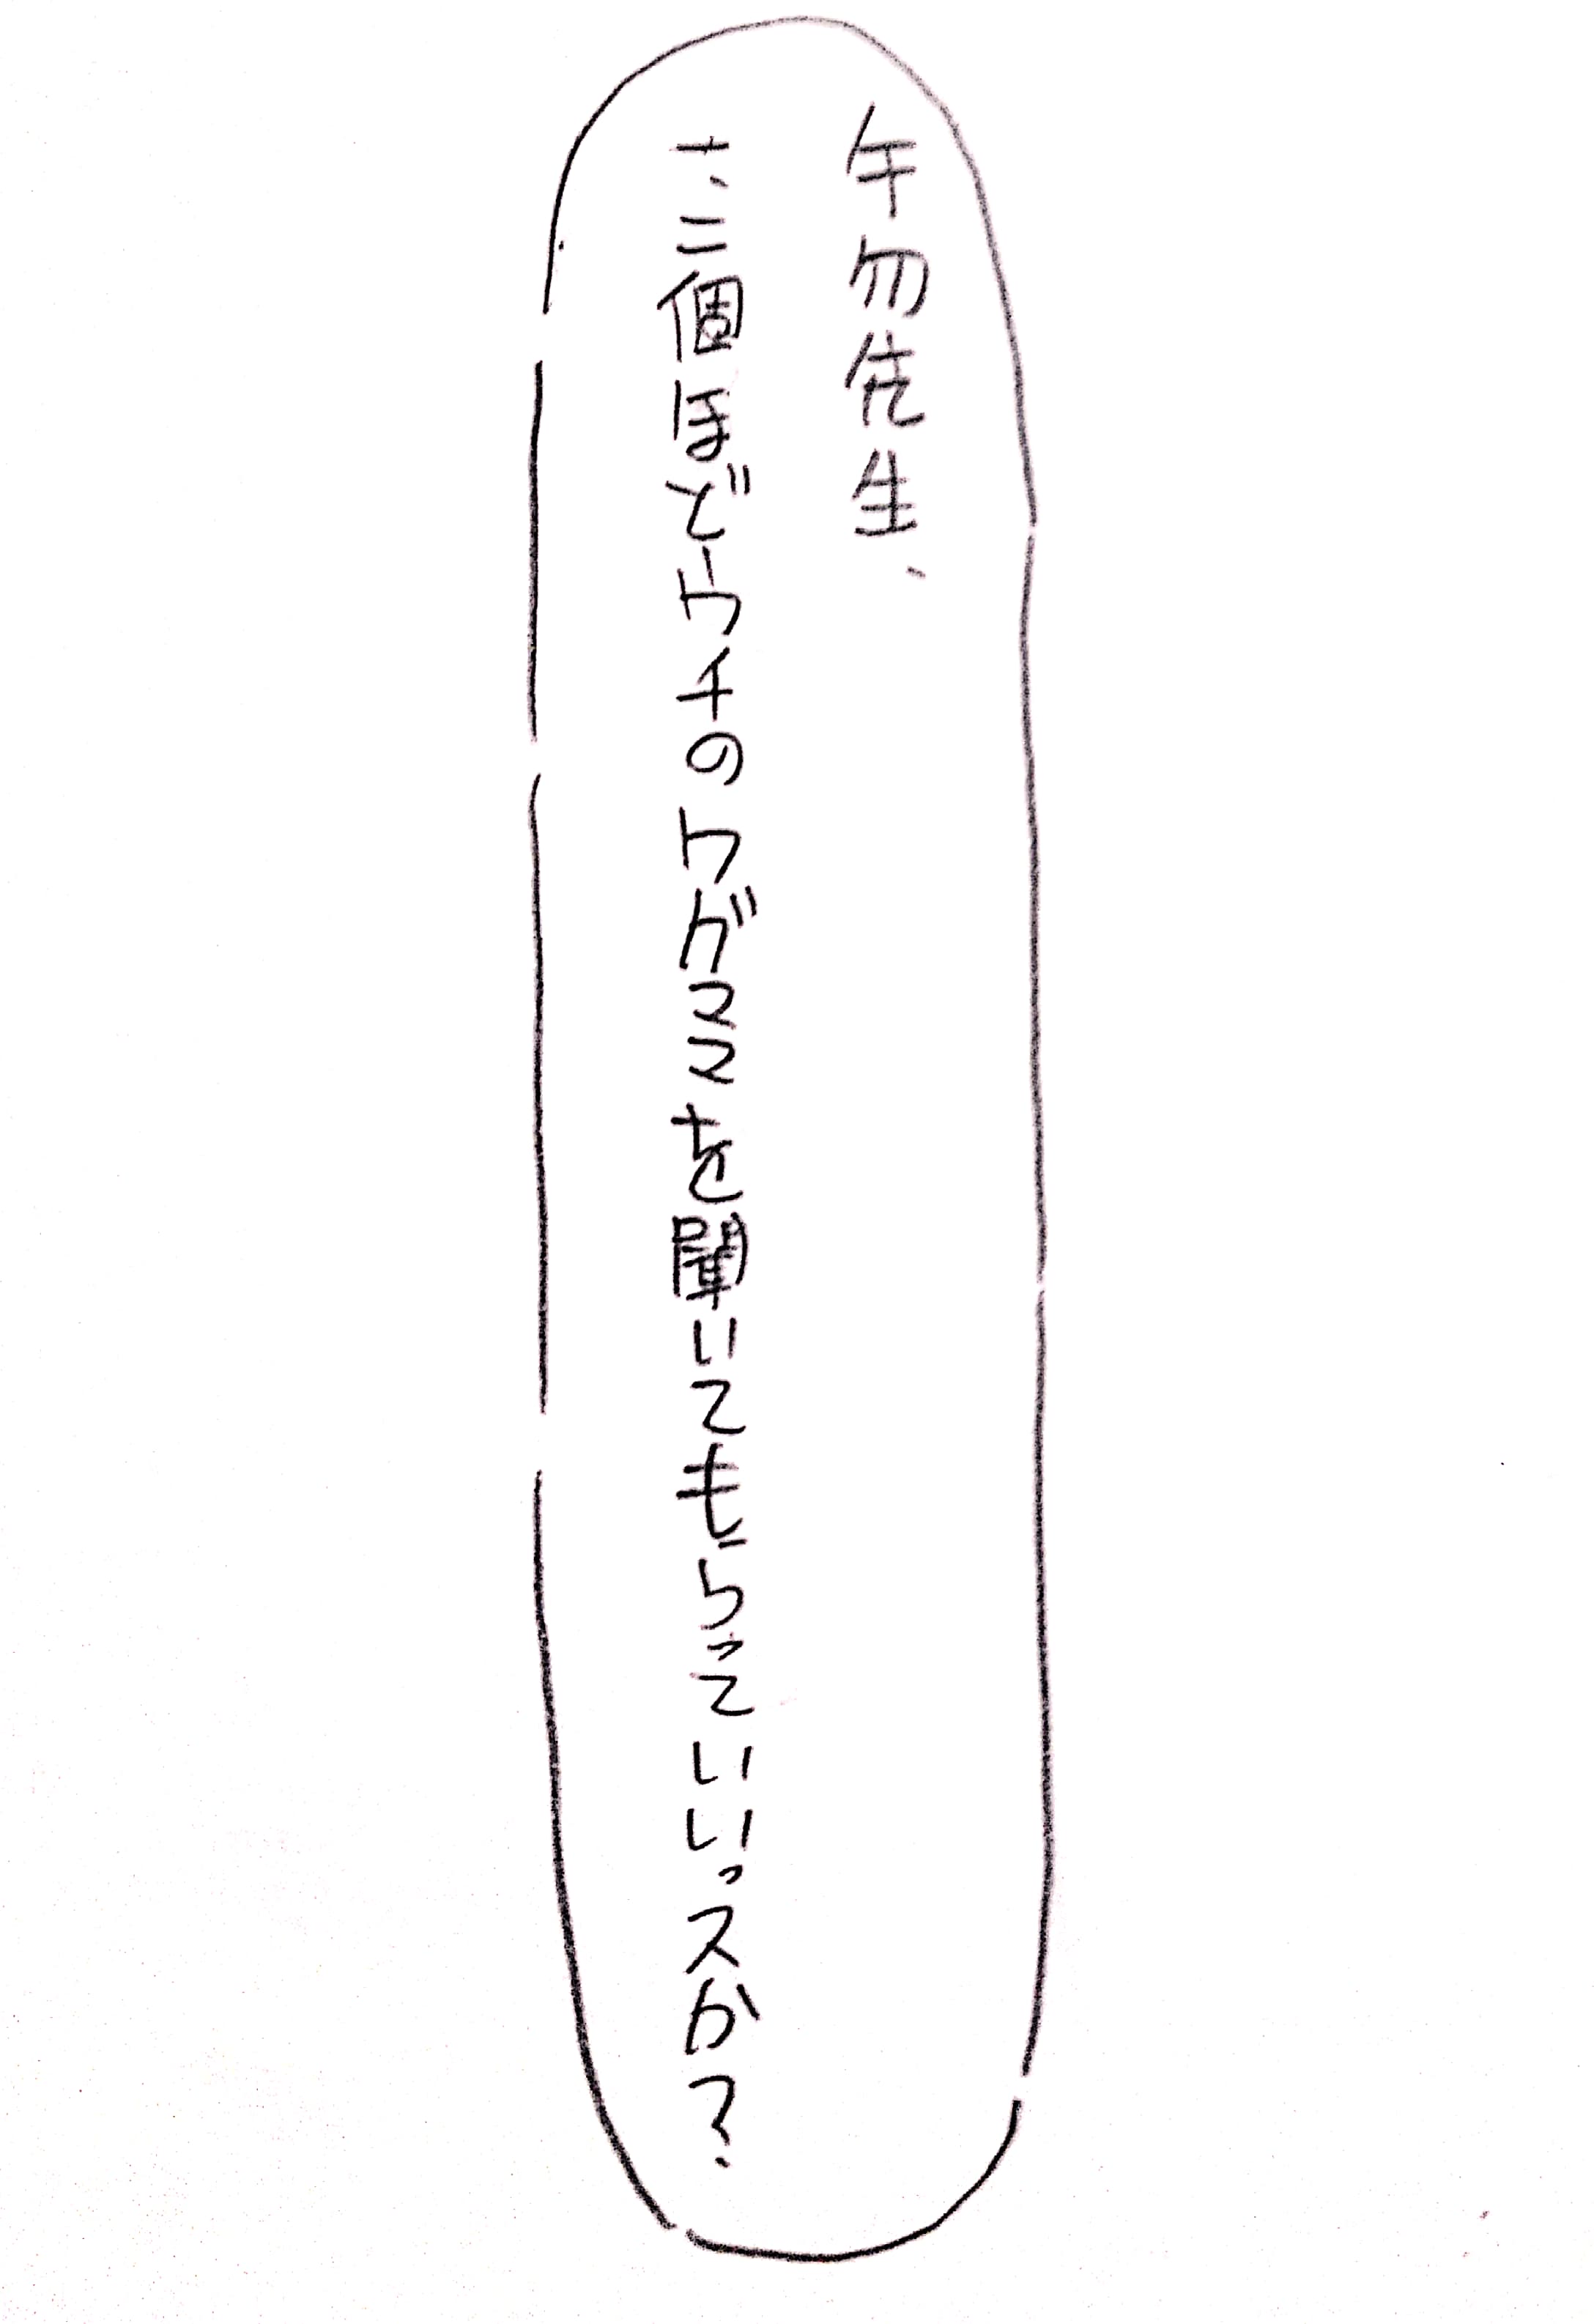 午勿先生、
十、二個ほどウチのワガママを聞いてもらっていいっスか?